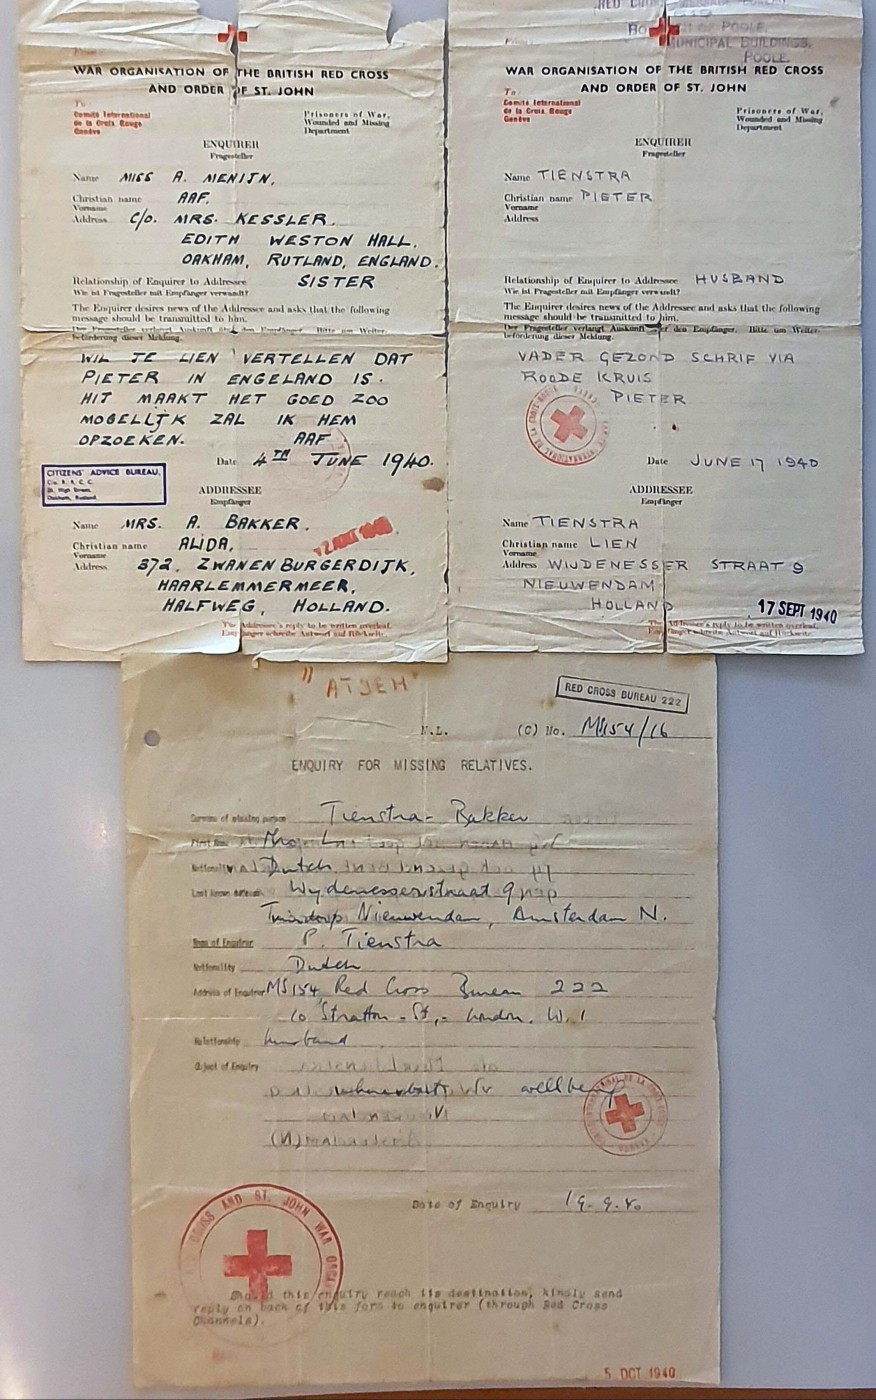 From:
WAR ORGANISATION OF THE BRITISH RED CROSS
AND ORDER OF ST. JOHN
To:
Comité International
de la Croix Rouge
Genève
Prisoners of War,
Wounded and Missing
Department
ENQUIRER
Fragesteller
Name MISS A. MENIJN,
Christian name AAF,
Vorname
Address C/O. MRS. KESSLER,
EDITH WESTON HALL,
OAKHAM, RUTLAND, ENGLAND.
Relationship of Enquirer to Addressee SISTER
Wie ist Fragesteller mit Empfänger verwandt?
The Enquirer desires news of the Addressee and asks that the following
message should be transmitted to him.
Der Fragesteller verlangt Auskunft über den Empfänger. Bitte um Weiter-
beförderung dieser Meldung.
WIL JE LIEN VERTELLEN DAT
PIETER IN ENGELAND IS.
HIT MAAKT HET GOED ZOO
MOGELIJK ZAL IK HEM
OPZOEKEN. AAF.
Date 4TH JUNE 1940.
CITIZENS' ADVICE BUREAU,
High Street,
Oakham, Rutland.
ADDRESSEE
Empfänger
Name MRS. A. BAKKER,
Christian name ALIDA,
Vorname
Address 372, ZWANENBURGERDIJK,
HAARLEMMERMEER,
HALFWEG, HOLLAND.
1940
The Addressee's reply to be written overleaf.
Empfänger schreibe Antwort auf Rückseite.
OF POOLE,
MUNICIPAL BUILDINGS,
POOLE.
From:
WAR ORGANISATION OF THE BRITISH RED CROSS
AND ORDER OF ST. JOHN
To:
Comité International
de la Croix Rouge
Genève
Prisoners of War,
Wounded and Missing
Department
ENQUIRER
Fragesteller
Name TIENSTRA
Christian name PIETER
Vorname
Address
Relationship of Enquirer to Addressee HUSBAND
Wie ist Fragesteller mit Empfänger verwandt?
The Enquirer desires news of the Addressee and asks that the following
message should be transmitted to him.
Der Fragesteller verlangt Auskunft über den Empfänger. Bitte um Weiter-
beförderung dieser Meldung.
VADER GEZOND SCHRIF VIA
ROODE KRUIS
PIETER
Date JUNE 17 1940
ADDRESSEE
Empfänger
Name TIENSTRA
Christian name LIEN
Vorname
Address WIJDENESSER STRAAT 9
NIEUWENDAM
HOLLAND
17 SEPT 1940
The Addressee's reply to be written overleaf.
Empfänger schreibe Antwort auf Rückseite.
"ATJEH"
RED CROSS BUREAU 222
N.L. (C) No. MS154/16
ENQUIRY FOR MISSING RELATIVES.
Surname of missing person Tienstra-Bakker
First Name
Nationality Dutch
Last known address Wydenesserstraat 9
Tuindorp Nieuwendam, Amsterdam N.
Name of Enquirer P. Tienstra
Nationality Dutch
Address of Enquirer MS154 Red Cross Bureau 222
10 Stratton-St,- London. W.1
Relationship husband
Object of Enquiry
whereabouts wellbeing
Date of Enquiry 19.9.40
Should this enquiry reach its destination, kindly send
reply on back of this form to enquirer (through Red Cross
Channels).
5 OCT 1940